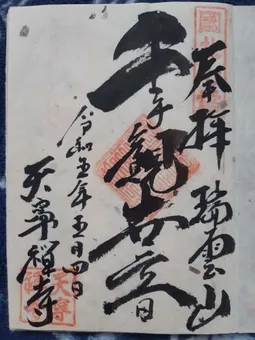 奉拝 瑞雲山
千手觀世音
令和五年五月四日
天寧禅寺